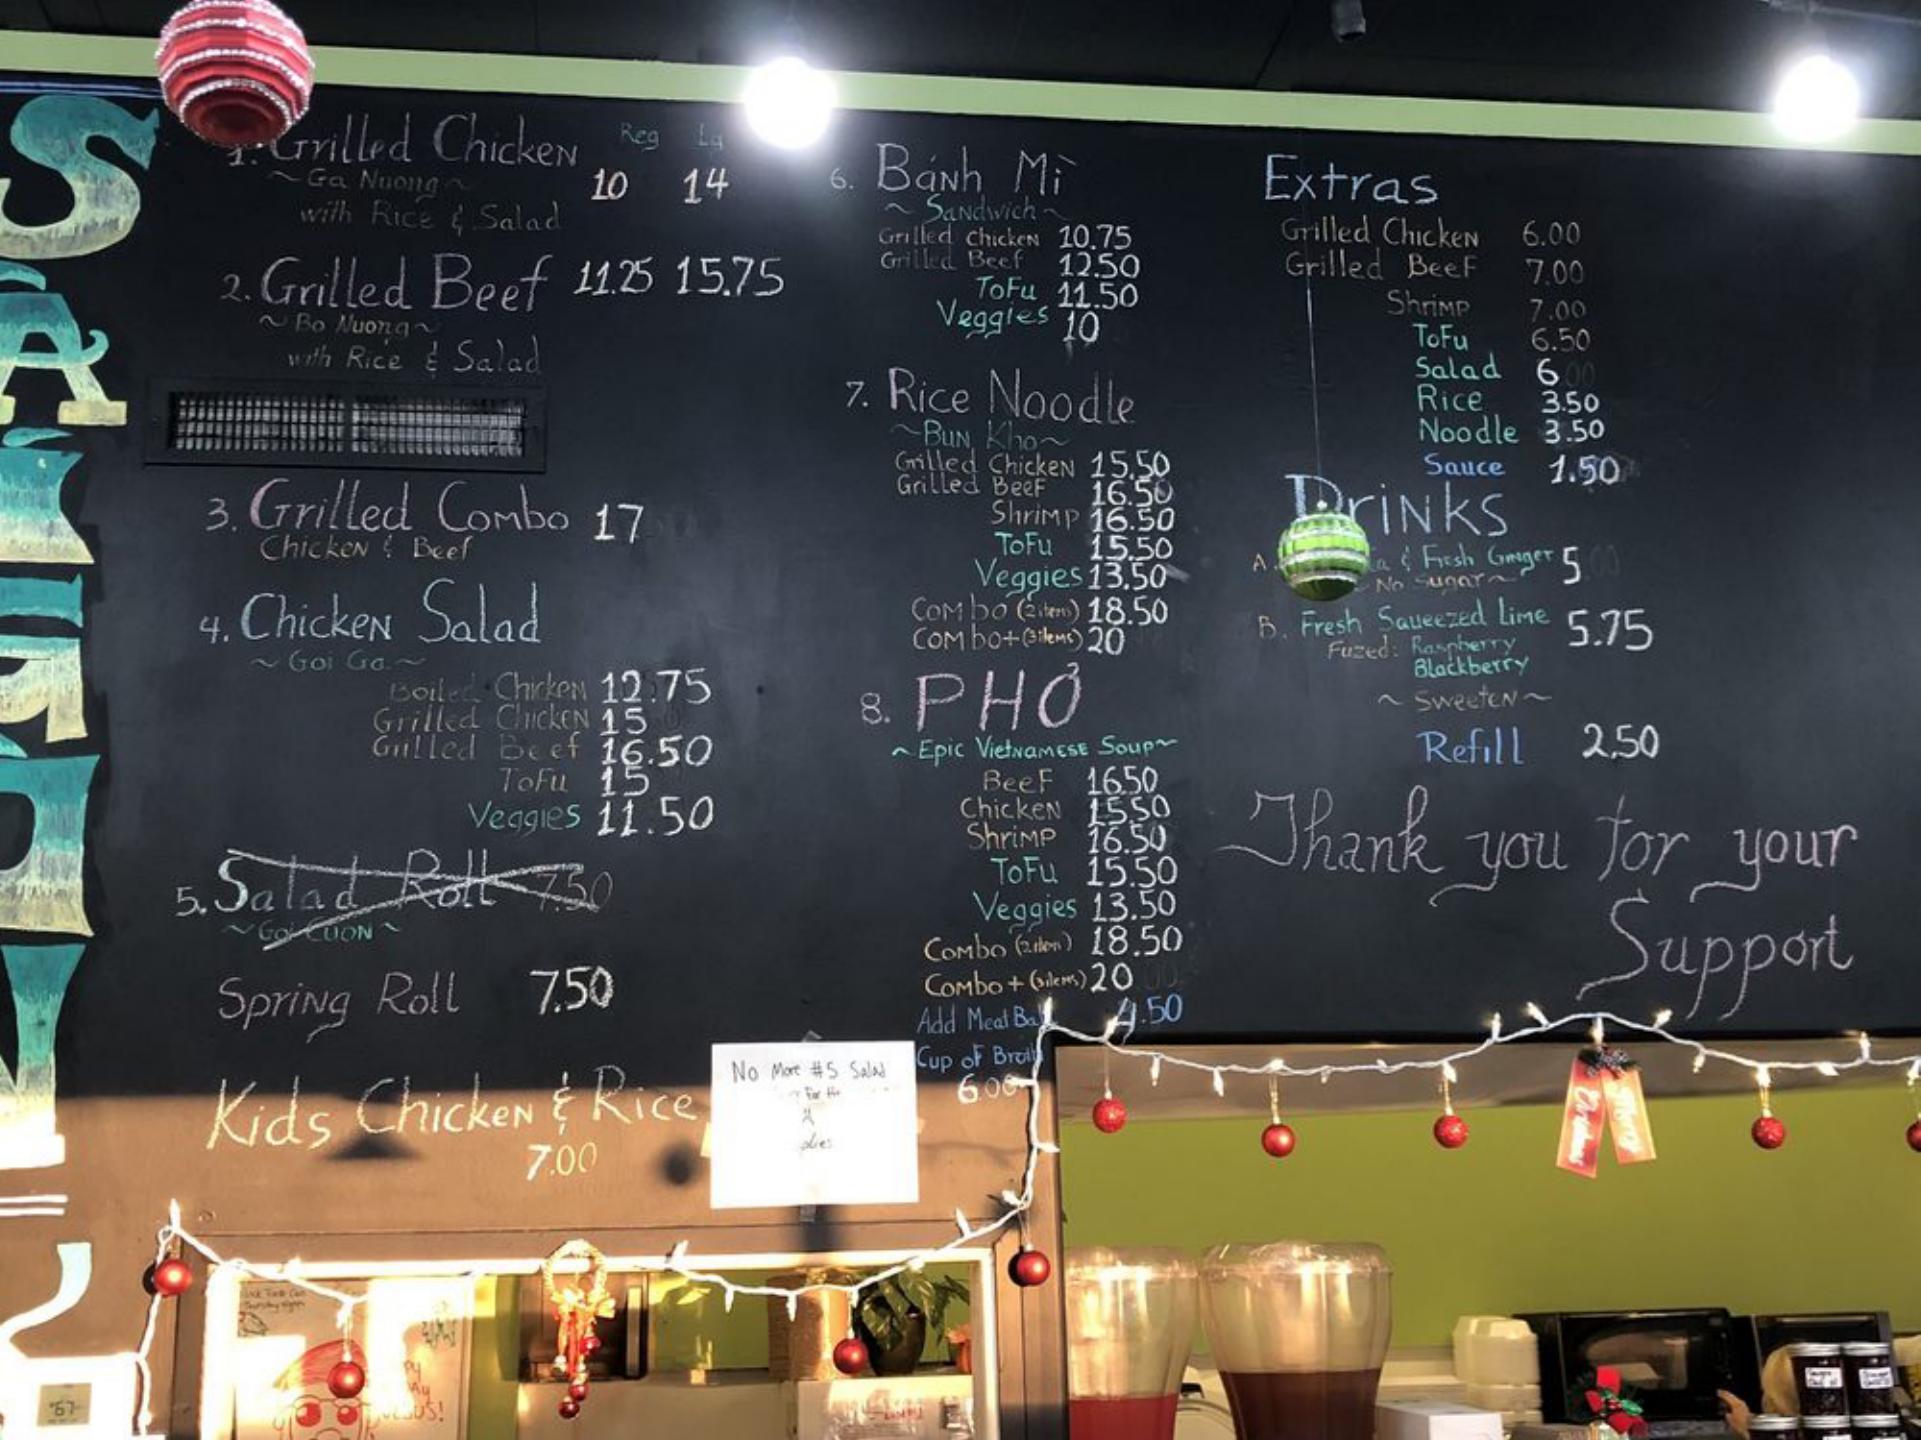 SAIGON
1. Grilled Chicken Reg Lg
~Ga Nuong~ 10 14
with Rice & Salad
2. Grilled Beef 11.25 15.75
~Bo Nuong~
with Rice & Salad
3. Grilled Combo 17
Chicken & Beef
4. Chicken Salad
~Goi Ga~
Boiled Chicken 12.75
Grilled Chicken 15
Grilled Beef 16.50
ToFu 15
Veggies 11.50
5. Salad Roll 7.50
~Goi CUON~
Spring Roll 7.50
Kids Chicken & Rice
7.00
No More #5 Salad
For the
6. Bánh Mì
~Sandwich~
Grilled Chicken 10.75
Grilled Beef 12.50
ToFu 11.50
Veggies 10
7. Rice Noodle
~BUN Kho~
Grilled Chicken 15.50
Grilled Beef 16.50
Shrimp 16.50
ToFu 15.50
Veggies 13.50
Combo (2 items) 18.50
Combo+ (3 items) 20
8. PHỞ
~Epic Vietnamese Soup~
Beef 16.50
Chicken 15.50
Shrimp 16.50
ToFu 15.50
Veggies 13.50
Combo (2 item) 18.50
Combo + (3 items) 20
Add Meat Ba 4.50
Cup of Broth
6.00
Extras
Grilled Chicken 6.00
Grilled Beef 7.00
Shrimp 7.00
ToFu 6.50
Salad 6
Rice 3.50
Noodle 3.50
Sauce 1.50
Drinks
A. & Fresh Ginger 5
No Sugar~
B. Fresh Squeezed Lime 5.75
Fuzed: Raspberry
Blackberry
~Sweeten~
Refill 2.50
Thank you for your
Support
Merry
Christmas